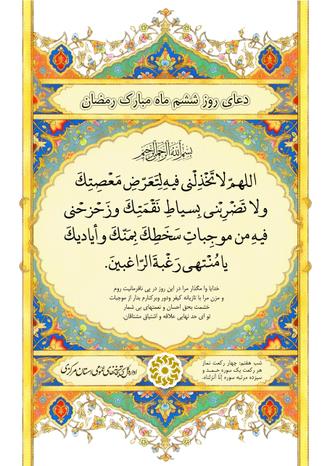 دعای روز ششم ماه مبارک رمضان
بسم الله الرحمن الرحیم
اللهم لا تَخْذُلنی فیهِ لِتَعَرّضِ مَعْصیتِكَ
ولا تَضْرِبنی بِسیاطِ نَقْمَتِكَ وزَحْزِحْنی
فیهِ من موجِباتِ سَخَطِكَ بِمَنّكَ وأیادیكَ
یا مُنْتهى رَغْبةِ الرّاغبینَ.
خدایا وا مگذار مرا در این روز در پی نافرمانیت روم
و مزن مرا با تازیانه کیفر ودور وبرکنارم بدار از موجبات
خشمت بحق احسان و نعمتهای بی شمار
تو ای حد نهایی علاقه و اشتیاق مشتاقان.
شب هفتم: چهار رکعت نماز
هر رکعت یک سوره حمد و
سیزده مرتبه سوره إنّا أنزلناه.